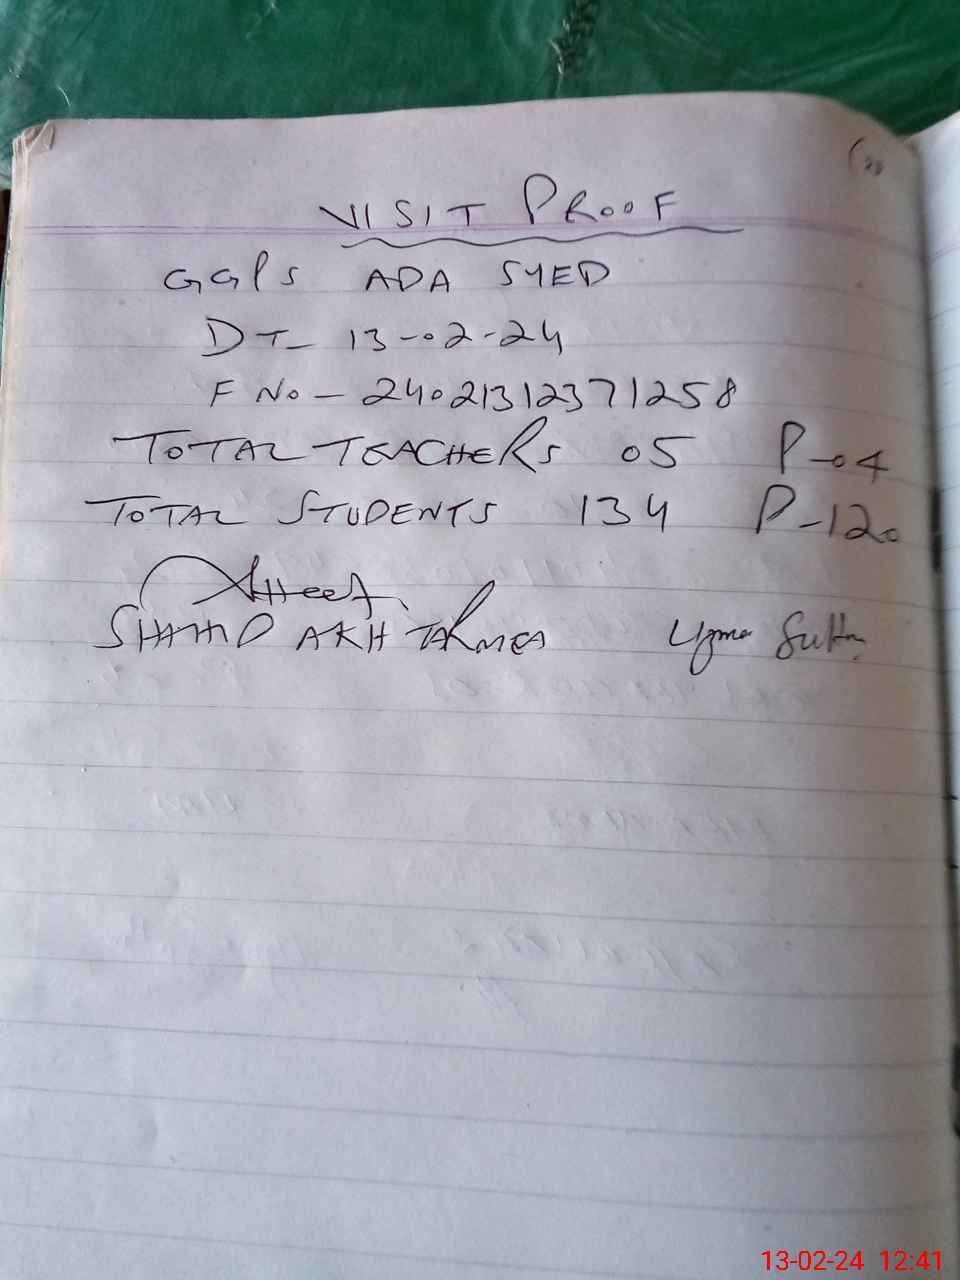 VISIT PROOF
GGPS ADA SYED
DT- 13-02-24
F No - 24021312371258
TOTAL TEACHERS 05 P-04
TOTAL STUDENTS 134 P-120
SHAHID AKHTAR MEA
Uzma
13-02-24 12:41